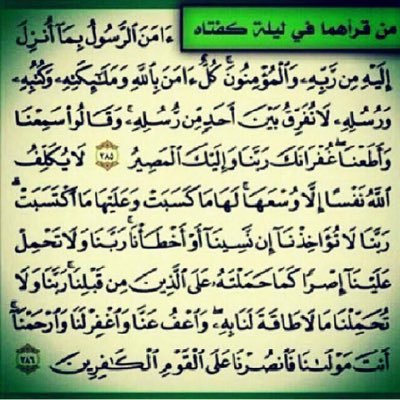 من قرأهما في ليلة كفتاه
ءَامَنَ ٱلرَّسُولُ بِمَآ أُنزِلَ
إِلَيْهِ مِن رَّبِّهِۦ وَٱلْمُؤْمِنُونَ ۚ كُلٌّ ءَامَنَ بِٱللَّهِ وَمَلَـٰٓئِكَتِهِۦ وَكُتُبِهِۦ
وَرُسُلِهِۦ لَا نُفَرِّقُ بَيْنَ أَحَدٍ مِّن رُّسُلِهِۦ ۚ وَقَالُوا۟ سَمِعْنَا
وَأَطَعْنَا ۖ غُفْرَانَكَ رَبَّنَا وَإِلَيْكَ ٱلْمَصِيرُ ٢٨٥ لَا يُكَلِّفُ
ٱللَّهُ نَفْسًا إِلَّا وُسْعَهَا ۚ لَهَا مَا كَسَبَتْ وَعَلَيْهَا مَا ٱكْتَسَبَتْ ۗ
رَبَّنَا لَا تُؤَاخِذْنَآ إِن نَّسِينَآ أَوْ أَخْطَأْنَا ۚ رَبَّنَا وَلَا تَحْمِلْ
عَلَيْنَآ إِصْرًا كَمَا حَمَلْتَهُۥ عَلَى ٱلَّذِينَ مِن قَبْلِنَا ۚ رَبَّنَا وَلَا
تُحَمِّلْنَا مَا لَا طَاقَةَ لَنَا بِهِۦ ۖ وَٱعْفُ عَنَّا وَٱغْفِرْ لَنَا وَٱرْحَمْنَآ ۚ
أَنتَ مَوْلَىٰنَا فَٱنصُرْنَا عَلَى ٱلْقَوْمِ ٱلْكَـٰفِرِينَ ٢٨٦